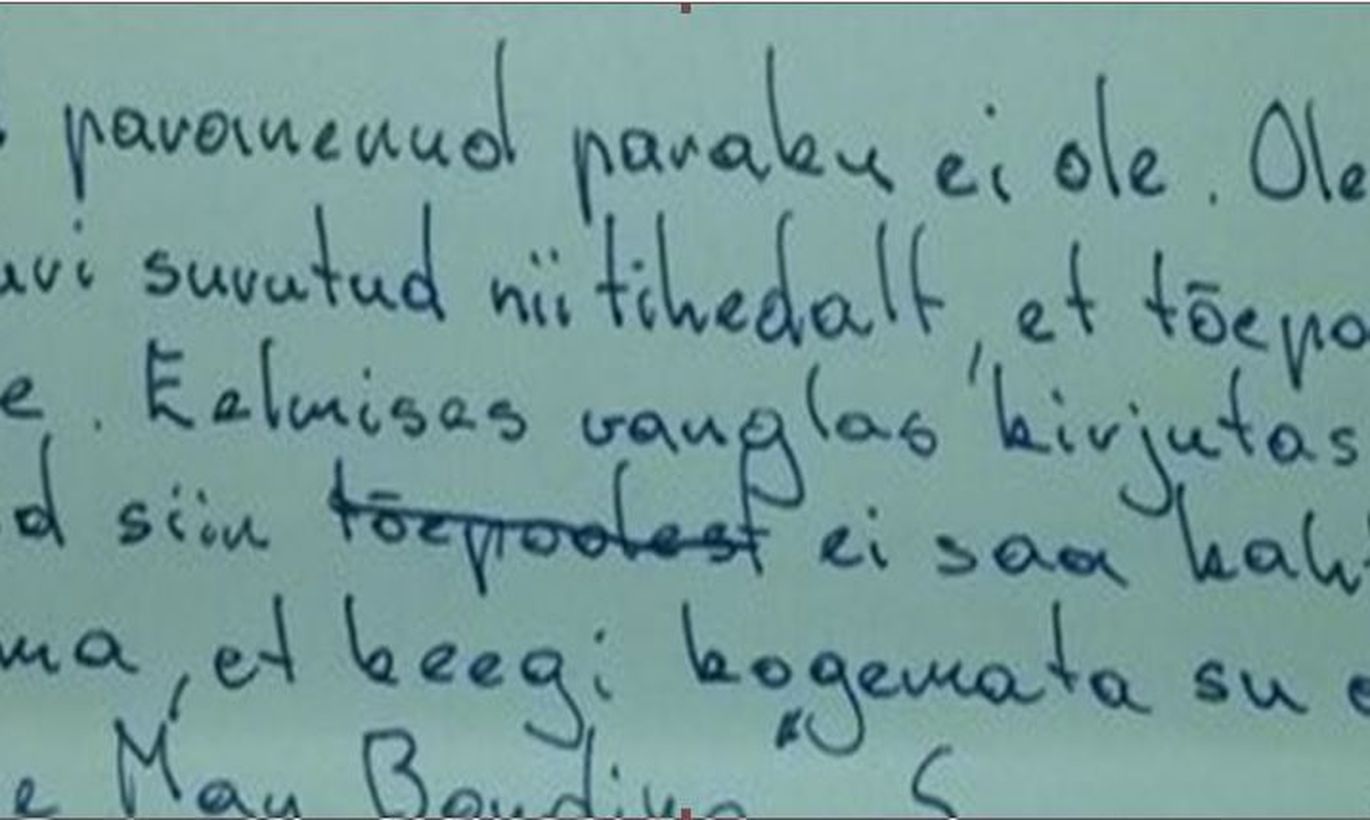 paranenud paraku ei ole. Ole
uvi surutud nii tihedalt, et tõepo
e. Eelmises vanglas kirjutas
d siin ~~tõepoolest~~ ei saa kah
ma, et keegi kogemata su e
e Man Bandina S